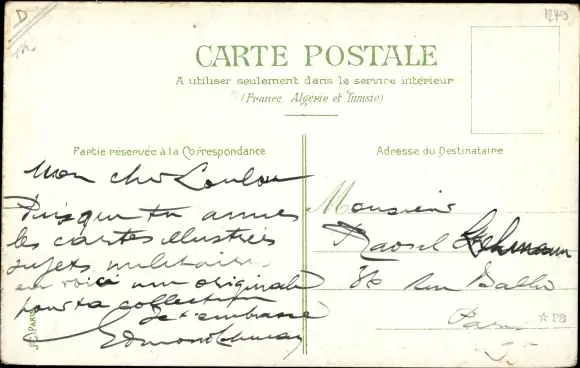 D
1245
CARTE POSTALE
A utiliser seulement dans le service intérieur
(France, Algérie et Tunisie)
Partie réservée à la Correspondance
Adresse du Destinataire
Mon cher Loulou
Puisque tu aimes
les cartes illustrées
sujets militaires
en voici une originale
pour ta collection
Je t'embrasse
Edmond Lehman
Monsieur
Raoul Lehmann
36 rue Ballu
Paris
PB
PARIS